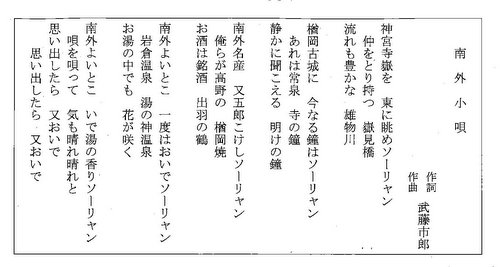 南外小唄
作詞
作曲 武藤市郎
神宮寺嶽を 東に眺めソーリャン
仲をとり持つ 嶽見橋
流れも豊かな 雄物川
楢岡古城に 今なる鐘はソーリャン
あれは常泉 寺の鐘
静かに聞こえる 明けの鐘
南外名産 又五郎こけしソーリャン
俺らが高野の 楢岡焼
お酒は銘酒 出羽の鶴
南外よいとこ 一度はおいでソーリャン
岩倉温泉 湯の神温泉
お湯の中でも 花が咲く
南外よいとこ いで湯の香りソーリャン
唄を唄って 気も晴れ晴れと
思い出したら 又おいで
思い出したら 又おいで